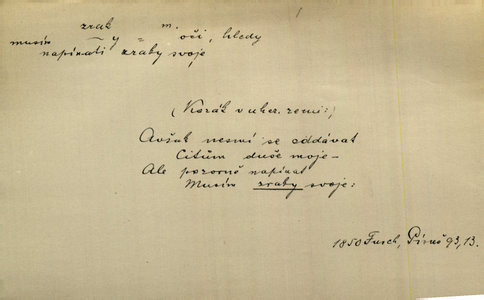 zrak m.
musím –y = oči, hledy
napínati zraky svoje
(Kozák v uher. zemi:)
Avšak nesmí se oddávat
Citům duše moje –
Ale pozorně napínat
Musím zraky svoje:
1850 Fusch, Písně 93, 13.